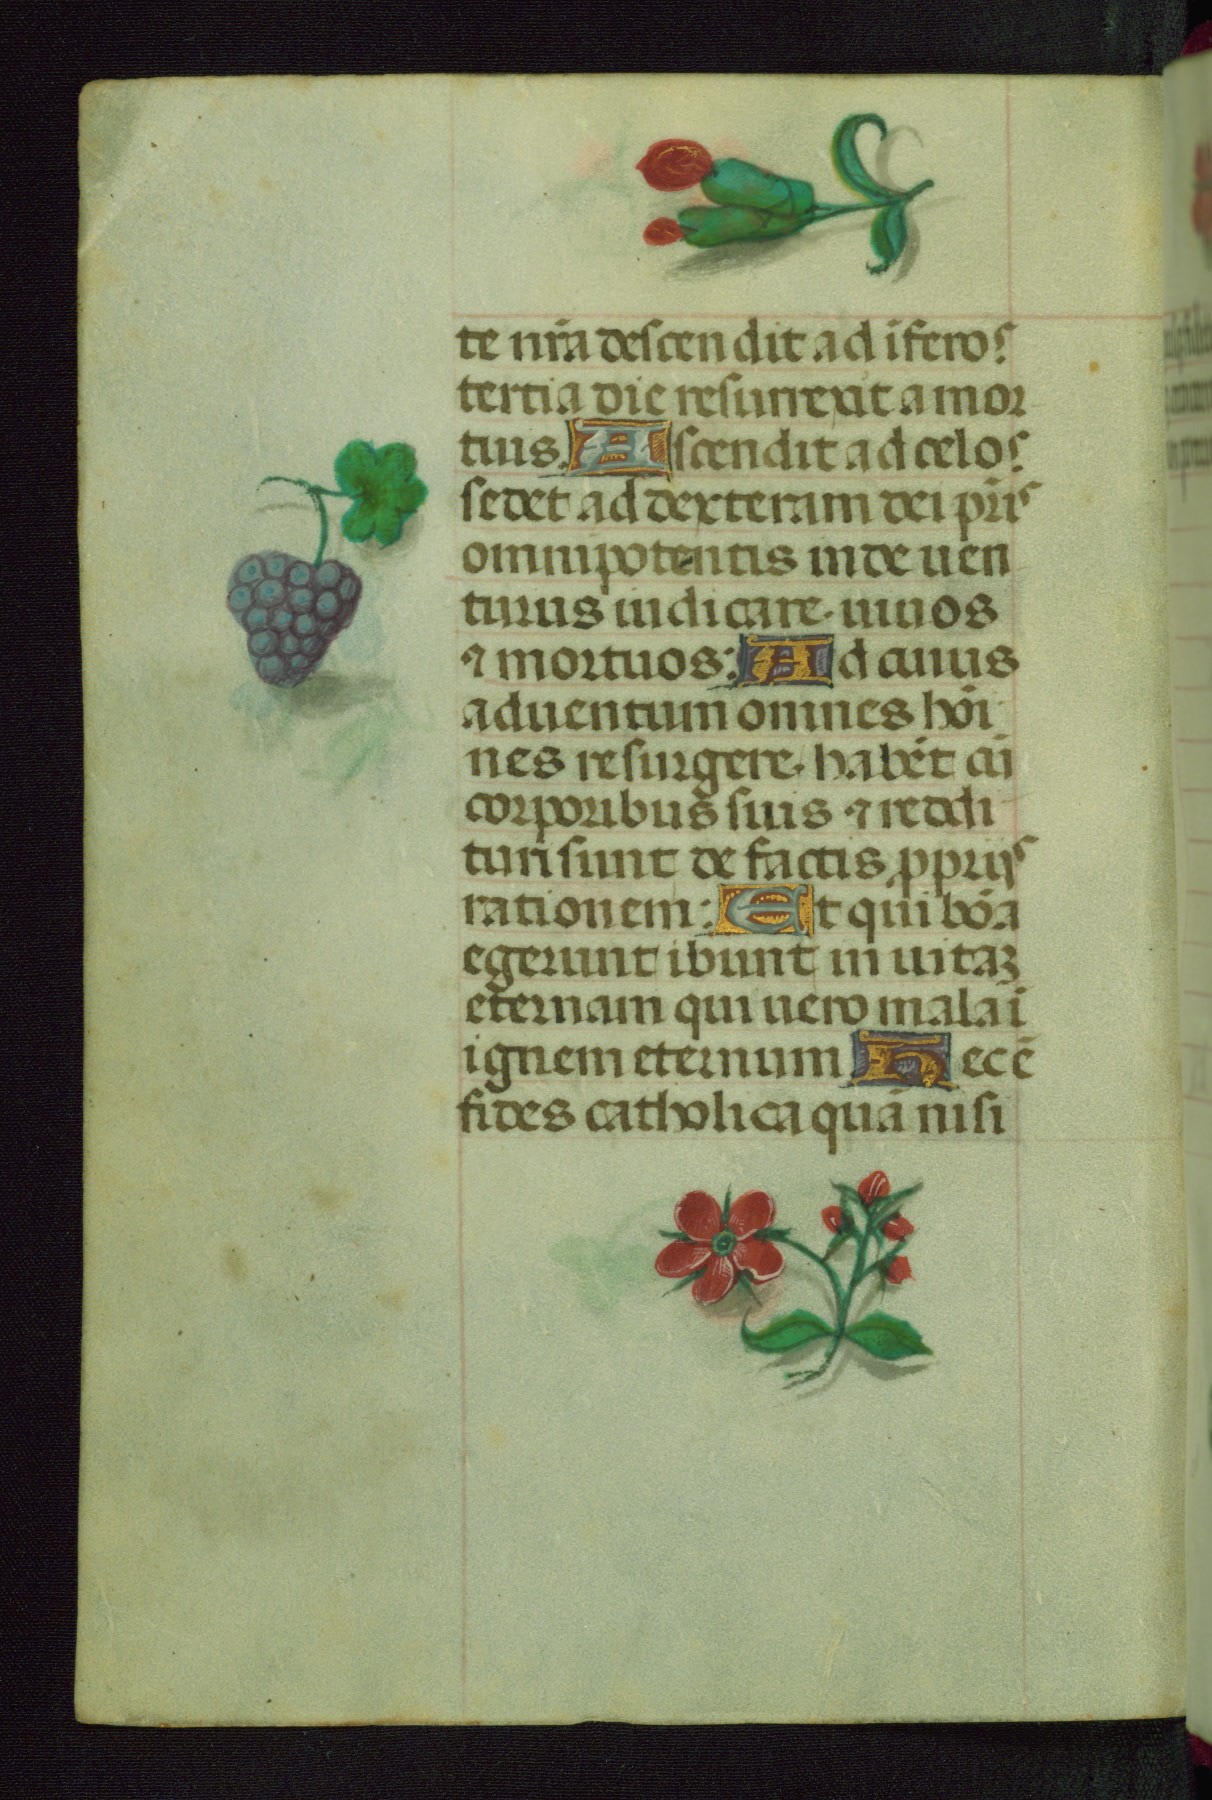 te nr̄a descendit ad īferos
tertia die resurrexit a mor
tuis. Ascendit ad celos
sedet ad dexteram dei pr̄is
omnipotentis inde uen
turus iudicare uiuos
⁊ mortuos: Ad cuius
aduentum omnes hōi
nes resurgere habēt cū
corporibus suis ⁊ reddi
turi sunt de factis ꝓprijs
rationem: Et qui bōa
egerunt ibunt in uitaꝫ
eternam qui uero mala ī
ignem eternum Hec ē
fides catholica quā nisi